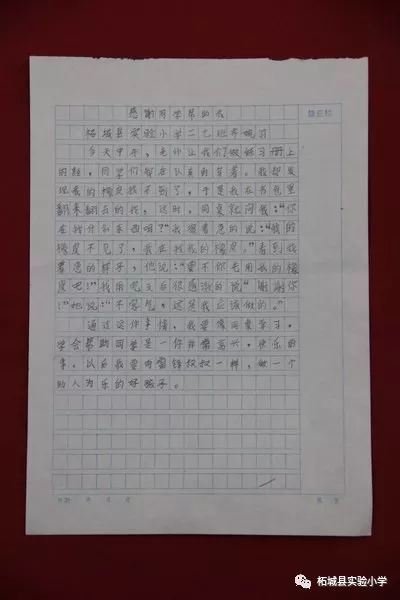 感谢同学帮助我
柘城县实验小学二七班
今天中午，老师让我们做练习册上
的题，同学们都在认真的写着。我却发
现我的橡皮找不到了，于是我在书包里
翻来翻去的找，这时，同桌就问我：“你
在找什么东西啊？”我很着急的说：“我的
橡皮不见了，我在找我的橡皮。”看到我
着急的样子，他说：“要不你先用我的橡
皮吧！”我用吧完后很感激的说“谢谢你
！”她说：“不客气，这是我应该做的。”
通过这件事情，我要像同桌学习，
学会帮助同学是一件非常高兴、快乐的
事，以后我要向雷锋叔叔一样，做一个
助人为乐的好孩子。
年 月 日
柘城县实验小学